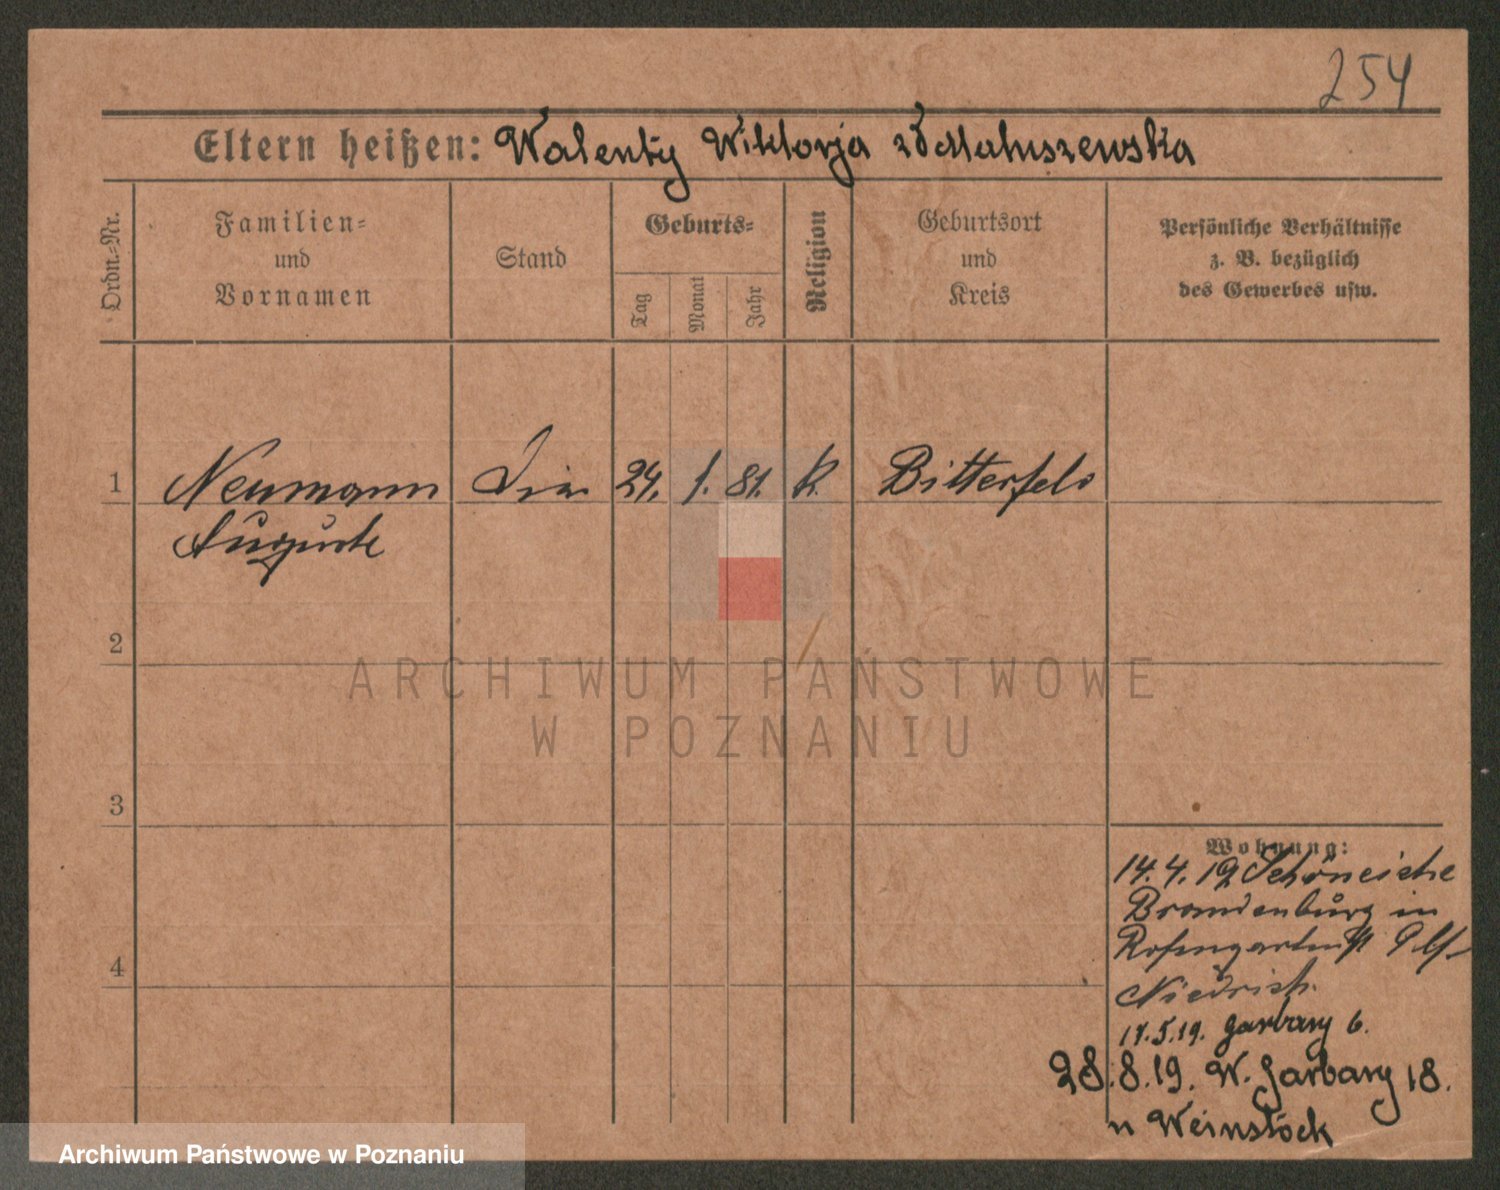 254
Eltern heißen: Walenty Wiktorja z d Matuszewska
Ordn.-Nr.
Familien-
und
Vornamen
Stand
Geburts-
Tag
Monat
Jahr
Religion
Geburtsort
und
Kreis
Persönliche Verhältnisse
z. B. bezüglich
des Gewerbes usw.
1 Neumann 24. 1. 81. K. Bitterfeld
Auguste
2
3
4
Wohnung:
14. 4. 19 Schöneiche
Brandenburg in
Rosengartenstr 9
Niedrich.
17.5.19. Garbary 6.
28.8.19. W. Garbary 18.
u Weinstöck
ARCHIWUM PAŃSTWOWE
W POZNANIU
Archiwum Państwowe w Poznaniu